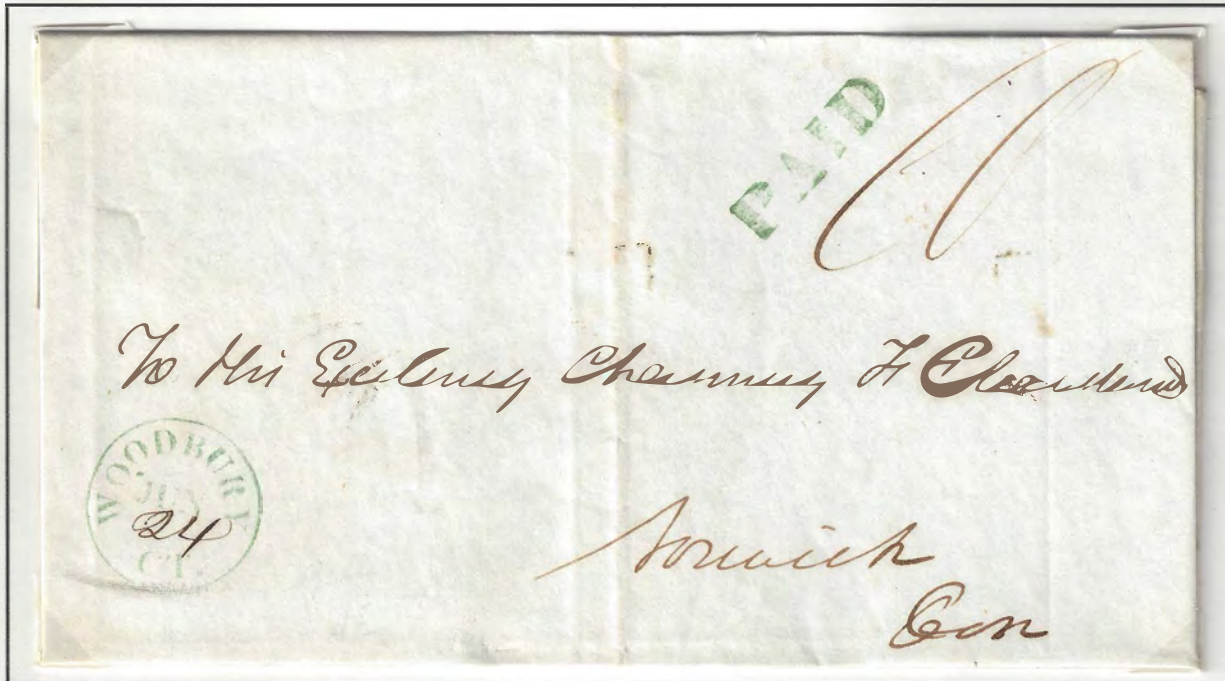 PAID
To His Excelency Chauncey F Cleaveland
WOODBURY
24
CT.
Norwich
Con